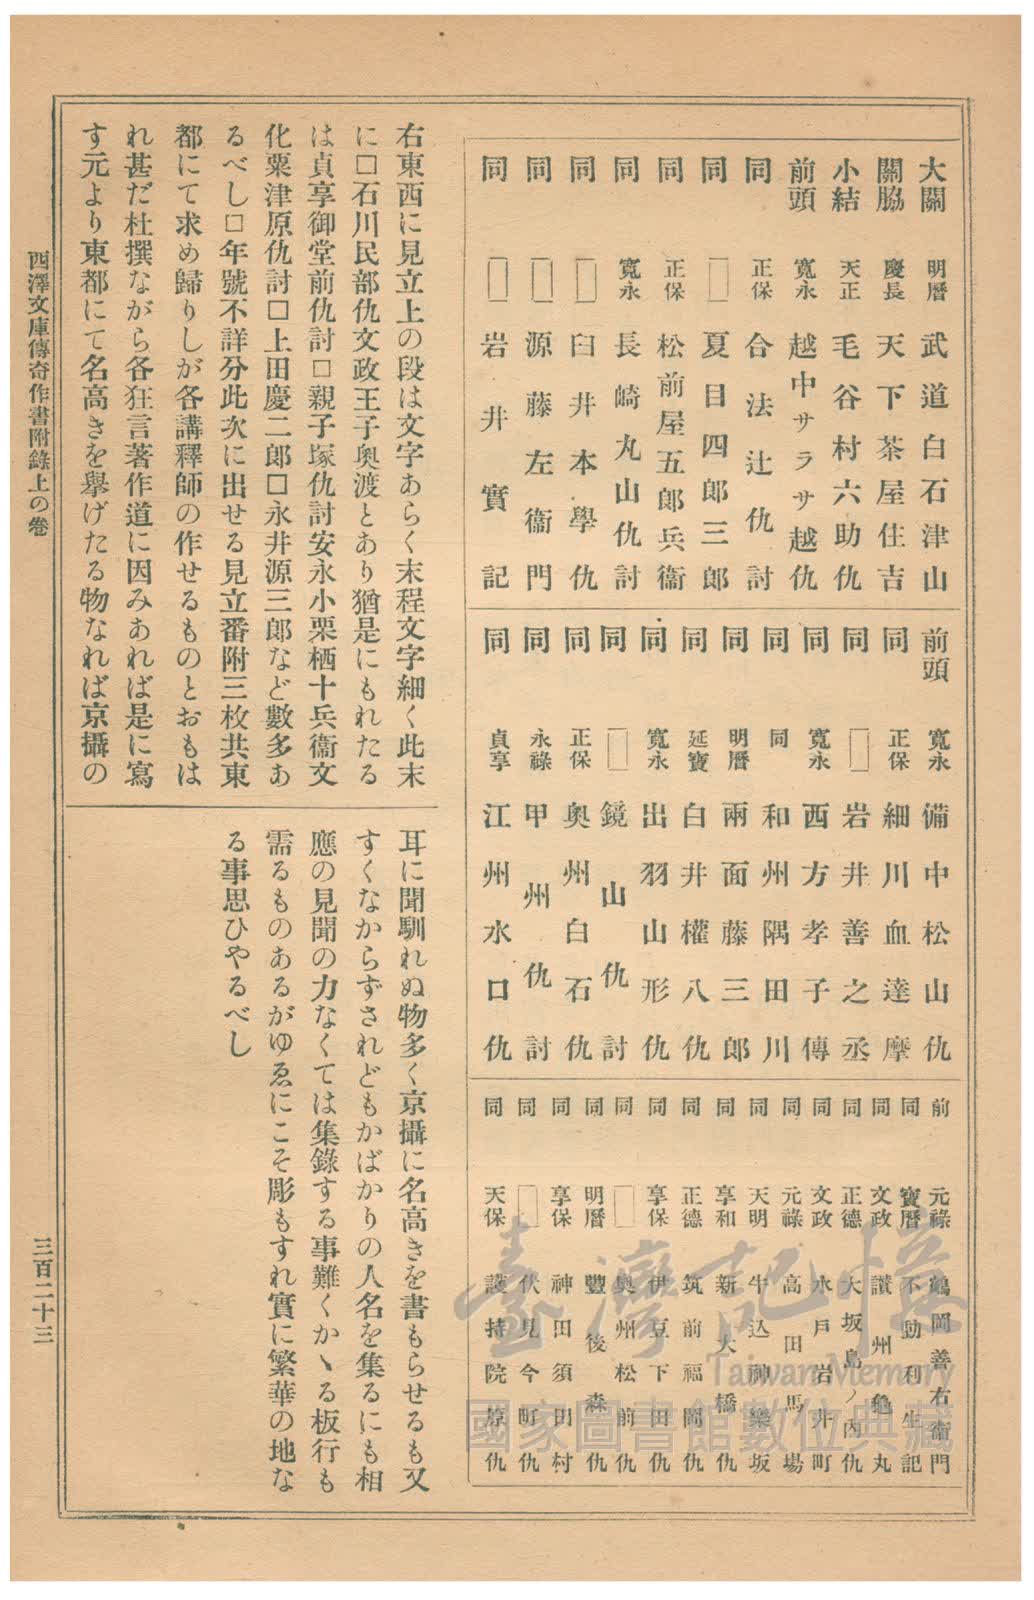 大關 明曆 武道白石津山
關脇 慶長 天下茶屋住吉
小結 天正 毛谷村六助仇
前頭 寬永 越中サラサ越仇
同 正保 合法辻仇討
同 □ 夏目四郎三郎
同 正保 松前屋五郎兵衞
同 寬永 長崎丸山仇討
同 □ 臼井本學仇
同 □ 源藤左衞門
同 □ 岩井實記
前頭 寬永 備中松山仇
同 正保 細川血達摩
同 □ 岩井善之丞
同 寬永 西方孝子傳
同 同 和州隅田川
同 明曆 兩面藤三郎
同 延寶 白井權八仇
同 寬永 出羽山形仇
同 □ 鏡山仇討
同 正保 奥州白石仇
同 永祿 甲州仇討
同 貞享 江州水口仇
前 元祿 鶴岡善右衞門
同 寶曆 不動利生記
同 文政 讃州龜丸
同 正德 大坂島ノ內仇
同 文政 水戶岩井町
同 元祿 高田馬場
同 天明 牛込神樂坂
同 享和 新大橋仇
同 正德 筑前福岡仇
同 享保 伊豆下田仇
同 □ 奥州松前仇
同 明曆 豐後森仇
同 享保 神田須田村
同 □ 伏見今町仇
同 天保 護持院原仇
右東西に見立上の段は文字あらく末程文字細く此末
に□石川民部仇文政王子奥渡とあり猶是にもれたる
は貞享御堂前仇討□親子塚仇討安永小栗栖十兵衞文
化粟津原仇討□上田慶二郎□永井源三郎など數多あ
るべし□年號不詳分此次に出せる見立番附三枚共東
都にて求め歸りしが各講釋師の作せるものとおもは
れ甚だ杜撰ながら各狂言著作道に因みあれば是に寫
す元より東都にて名高きを擧げたる物なれば京攝の
耳に聞馴れぬ物多く京攝に名高きを書もらせるも又
すくなからずされどもかばかりの人名を集るにも相
應の見聞の力なくては集錄する事難くかゝる板行も
需るものあるがゆゑにこそ彫もすれ實に繁華の地な
る事思ひやるべし
西澤文庫傳奇作書附錄上の卷
三百二十三
臺灣記憶
Taiwan Memory
國家圖書館數位典藏